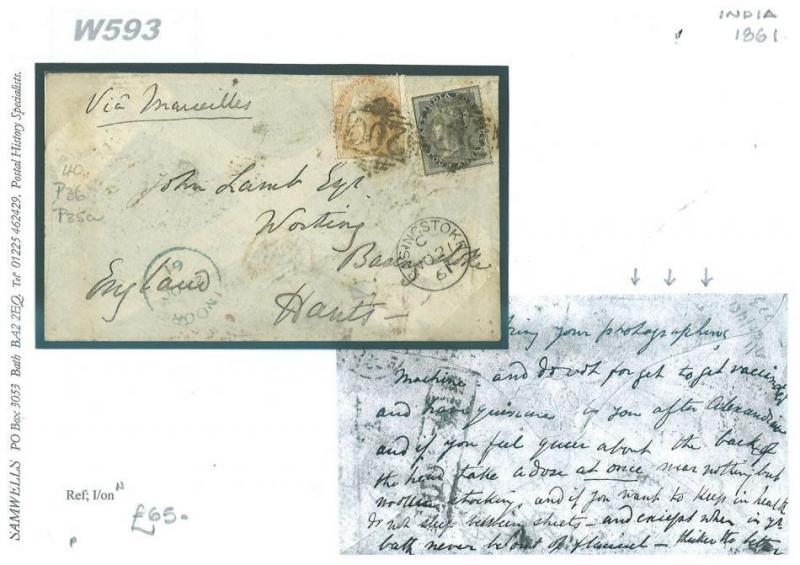 W593
INDIA
1861
SAMWELLS PO Box 3053 Bath BA2 2EQ. Tel' 01225 462429. Postal History Specialists.
Viâ Marseilles
40
P36
P35a
John Lamb Esqr.
Worting
Basingstoke
Hants
England
BASINGSTOKE
C
NO 21
61
INDORE
bring your photographing
Machine and do not forget to get vaccinated
and have quinine by you after Alexandria
and if you feel queer about the back of
the head take a dose at once wear nothing but
woollen stocking, and if you want to keep in health
do not sleep between sheets - and except when in yr
bath never be out of flannel - thicker the better
Ref; I/on N
£65-
P